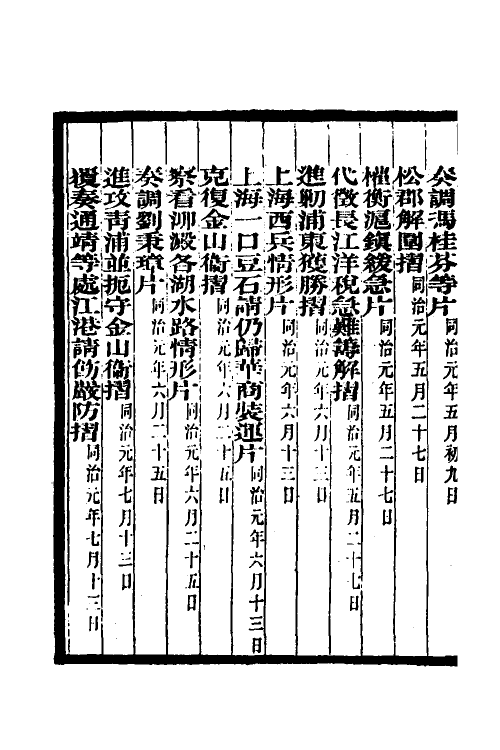 奏調馮桂芬等片同治元年五月初九日
松郡解圍摺同治元年五月二十七日
權衡滬鎮緩急片同治元年五月二十七日
代徵長江洋稅急難籌解摺同治元年五月二十七日
進剿浦東獲勝摺同治元年六月十三日
上海西兵情形片同治元年六月十三日
上海一口豆石請仍歸華商裝運片同治元年六月十三日
克復金山衞摺同治元年六月二十五日
察看泖澱各湖水路情形片同治元年六月二十五日
奏調劉秉璋片同治元年六月二十五日
進攻青浦並扼守金山衞摺同治元年七月十三日
覆奏通靖等處江港請飭嚴防摺同治元年七月十三日